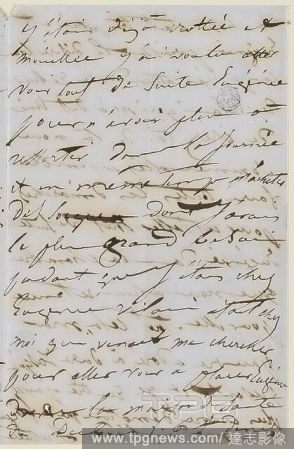 j'étais déjà crottée et
mouillée j'ai voulu aller
voir tout de suite Eugénie
pour n'avoir plus à
ressortir de la journée
et en même temps acheter
des dont j'avais
le plus grand besoin
pendant que j'étais chez
Eugénie Vilain était chez
moi qui venait me chercher
pour aller voir à place Eugénie
la maison
TPG
www.tpgnews.com / 達志影像